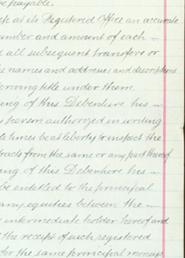 be payable.
at its Registered Office an accurate
number and amount of each —
d all subsequent transfers or
he names and addresses and descriptions
deriving title under them.
ing of this Debenture his —
person authorized in writing
times be at liberty to inspect the
tracts from the same or any part thereof
ing of this Debenture his —
be entitled to the principal
any equities between the —
intermediate holder hereof and
the receipt of such registered
for the same principal moneys